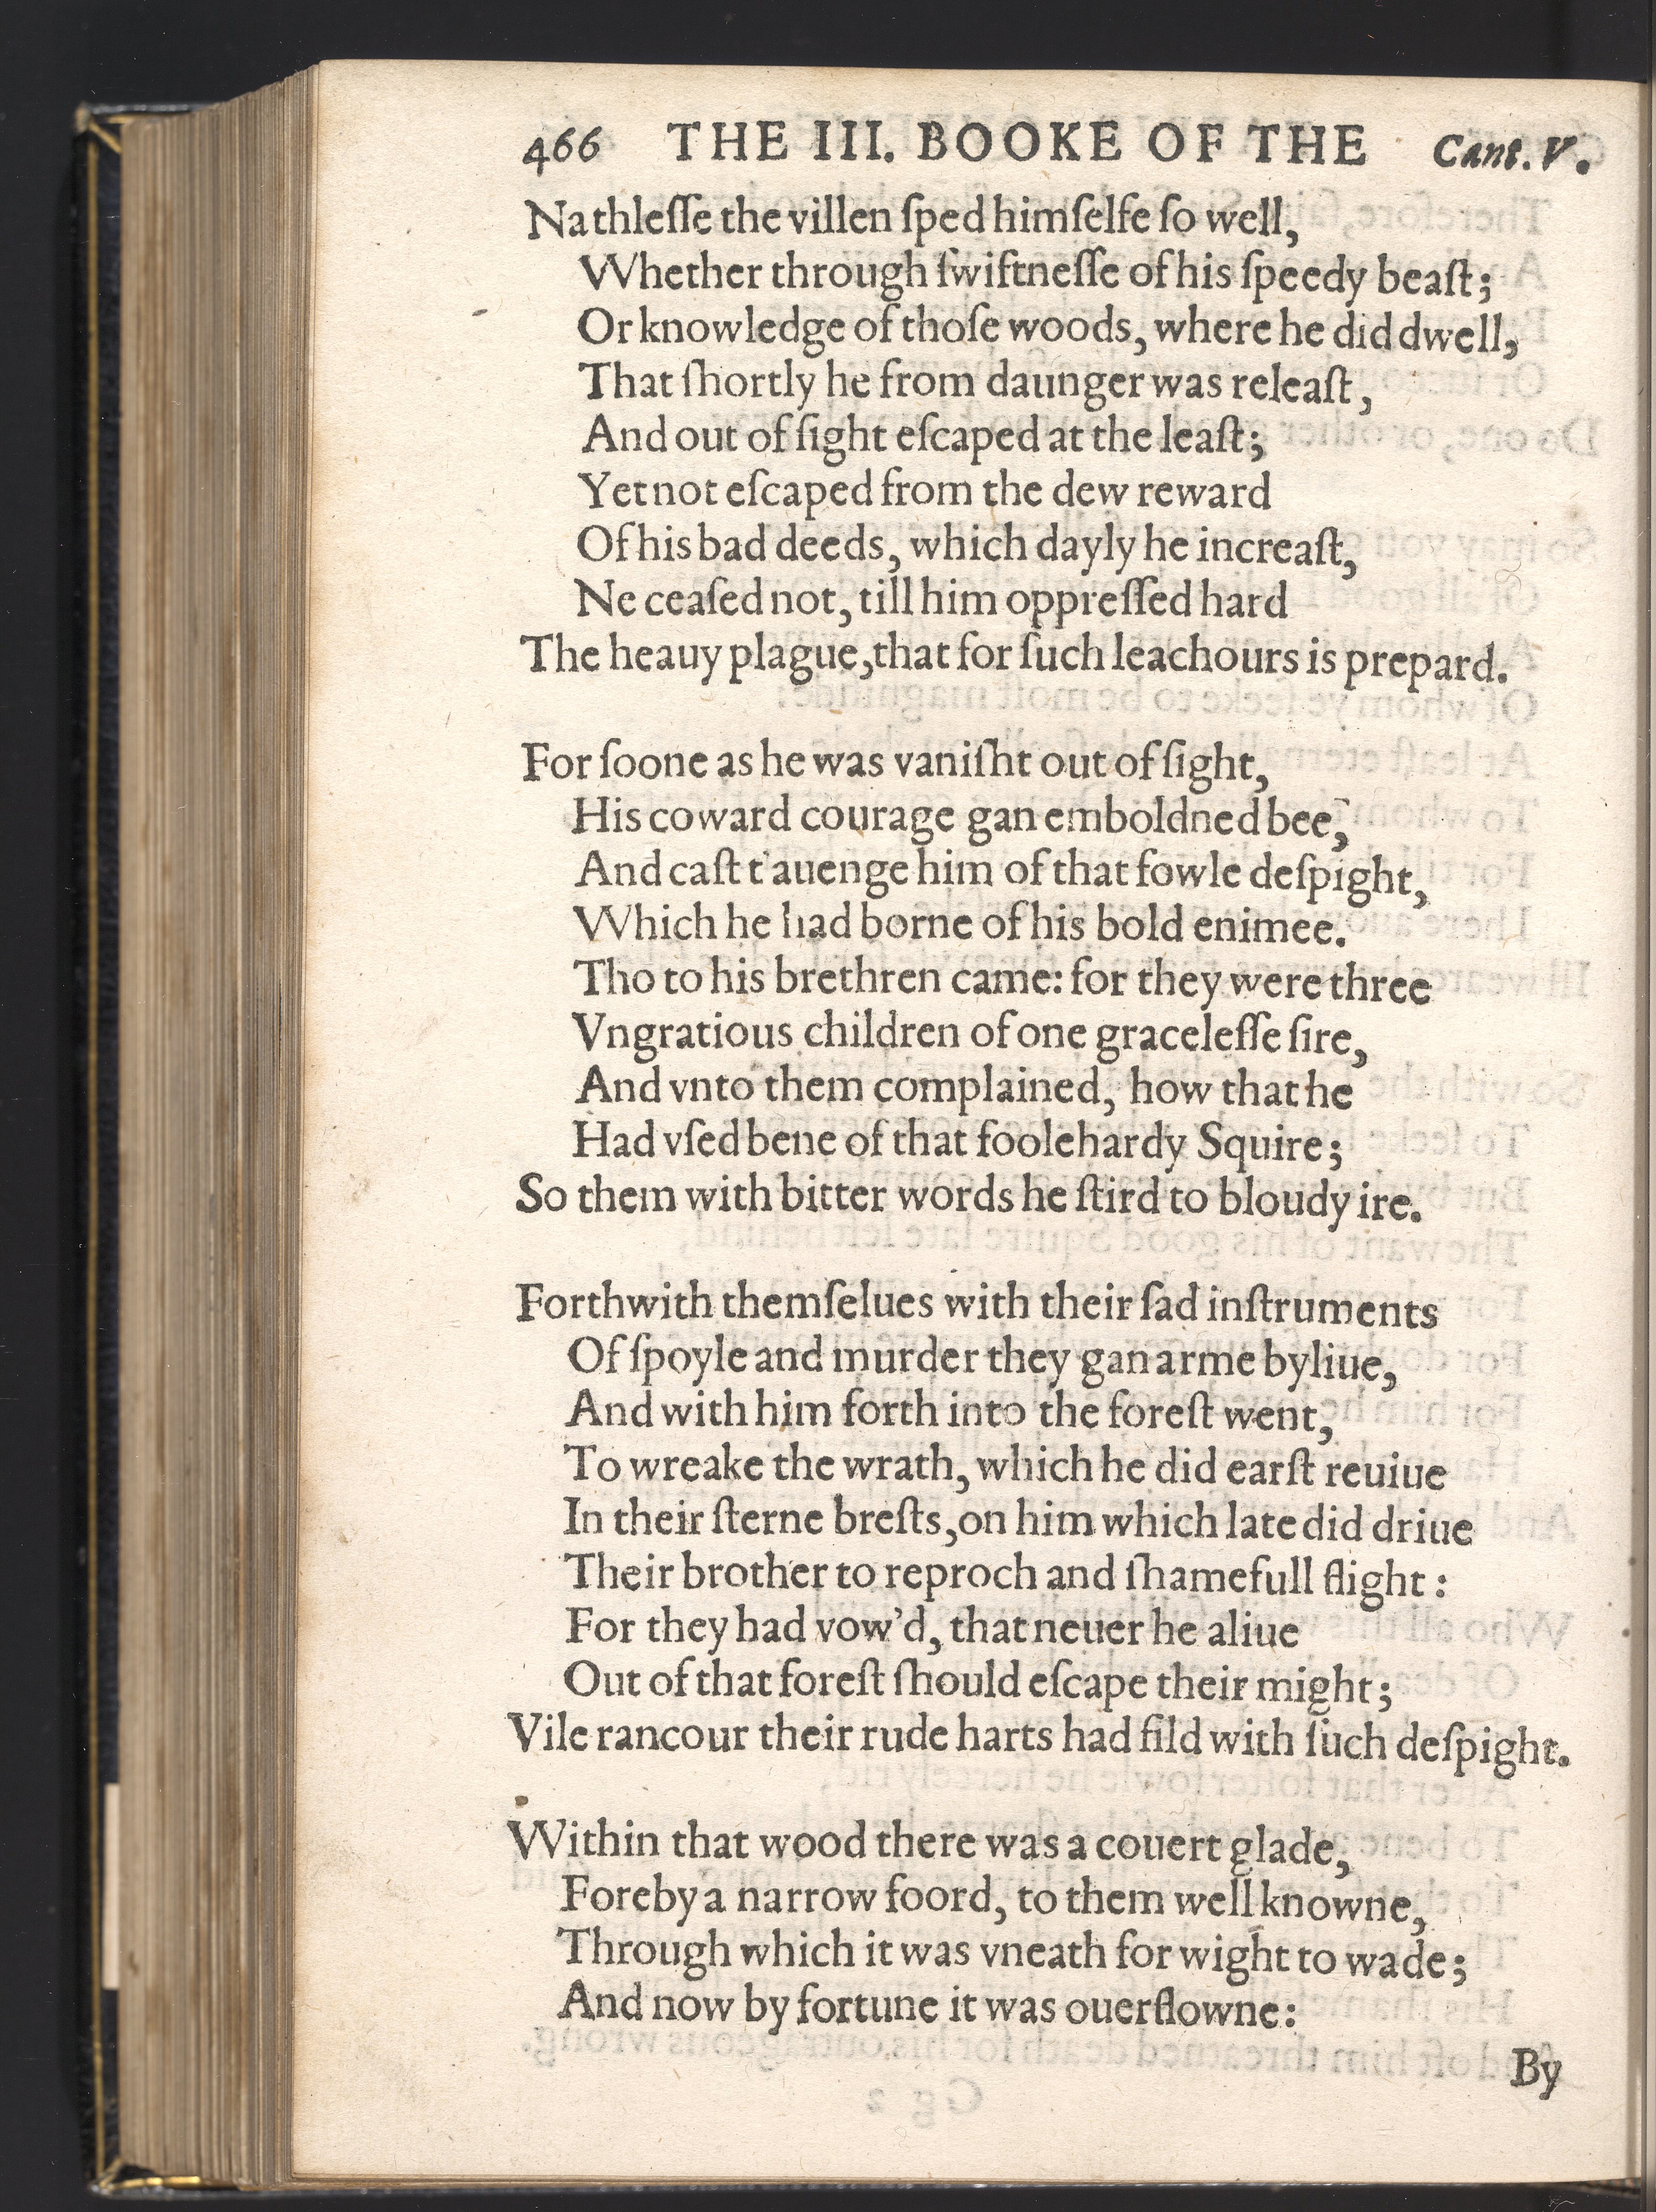 466 THE III. BOOKE OF THE Cant. V.
Nathleſſe the villen ſped himſelfe ſo well,
Whether through ſwiftneſſe of his ſpeedy beaſt;
Or knowledge of thoſe woods, where he did dwell,
That ſhortly he from daunger was releaſt,
And out of ſight eſcaped at the leaſt;
Yet not eſcaped from the dew reward
Of his bad deeds, which dayly he increaſt,
Ne ceaſed not, till him oppreſſed hard
The heauy plague, that for ſuch leachours is prepard.
For ſoone as he was vaniſht out of ſight,
His coward courage gan emboldned bee,
And caſt t'auenge him of that fowle deſpight,
Which he had borne of his bold enimee.
Tho to his brethren came: for they were three
Vngratious children of one graceleſſe ſire,
And vnto them complained, how that he
Had vſed bene of that foolehardy Squire;
So them with bitter words he ſtird to bloudy ire.
Forthwith themſelues with their ſad inſtruments
Of ſpoyle and murder they gan arme byliue,
And with him forth into the foreſt went,
To wreake the wrath, which he did earſt reuiue
In their ſterne breſts, on him which late did driue
Their brother to reproch and ſhamefull flight:
For they had vow'd, that neuer he aliue
Out of that foreſt ſhould eſcape their might;
Vile rancour their rude harts had fild with ſuch deſpight.
Within that wood there was a couert glade,
Foreby a narrow foord, to them well knowne,
Through which it was vneath for wight to wade;
And now by fortune it was ouerflowne:
By